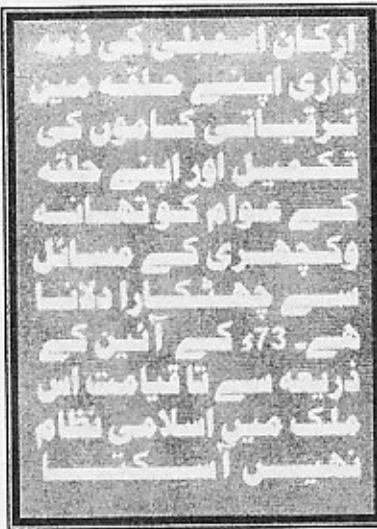 ارکان اسمبلی کی ذمہ
داری اپنے حلقہ میں
ترقیاتی کاموں کی
تکمیل اور اپنے حلقہ
کے عوام کو تھانہ
وکچھری کے مسائل
سے چھٹکارا دلانا
ھے۔ 73ء کے آئین کے
ذریعہ سے تا قیامت اس
ملک میں اسلامی نظام
نھیں آسکتا